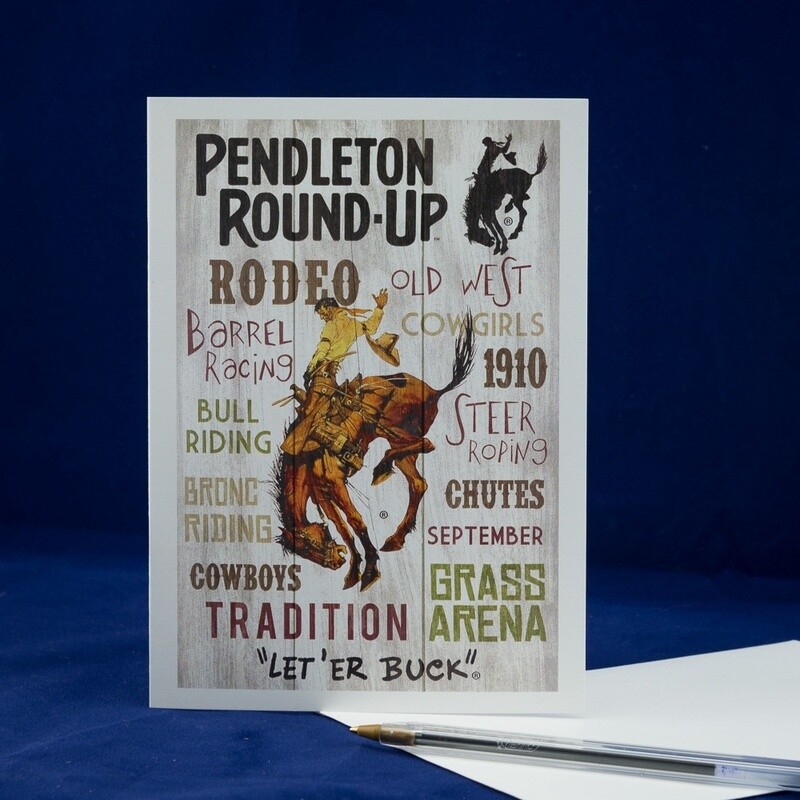 PENDLETON
ROUND-UP™
®
RODEO
OLD WEST
COWGIRLS
BARREL
RACING
1910
BULL
RIDING
STEER
ROPING
BRONC
RIDING
CHUTES
®
SEPTEMBER
COWBOYS
GRASS
ARENA
TRADITION
"LET'ER BUCK"®